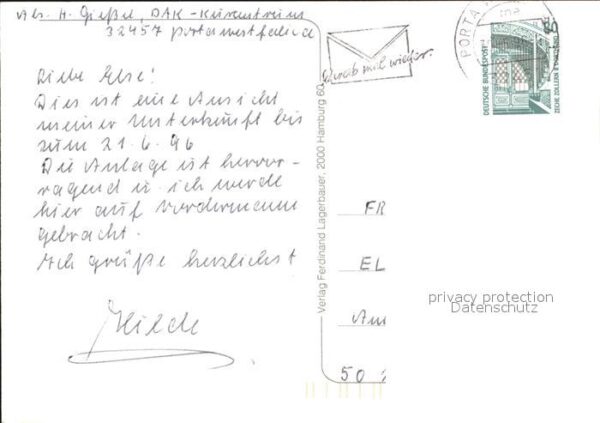 Abs. H. Gießel, DAK-Kurzentrum
32457 Porta Westfalica
Liebe Else!
Dies ist eine Ansicht
meiner Unterkunft bis
zum 21.6.96
Die Anlage ist hervor-
ragend u. ich werde
hier auf Vordermann
gebracht.
Ich grüße herzlichst
Hilde
Verlag Ferdinand Lagerbauer, 2000 Hamburg 80
Schreib mal wieder.
PORTA
80
DEUTSCHE BUNDESPOST
ZECHE ZOLLERN II DORTMUND
FR
EL
Am
50
privacy protection
Datenschutz